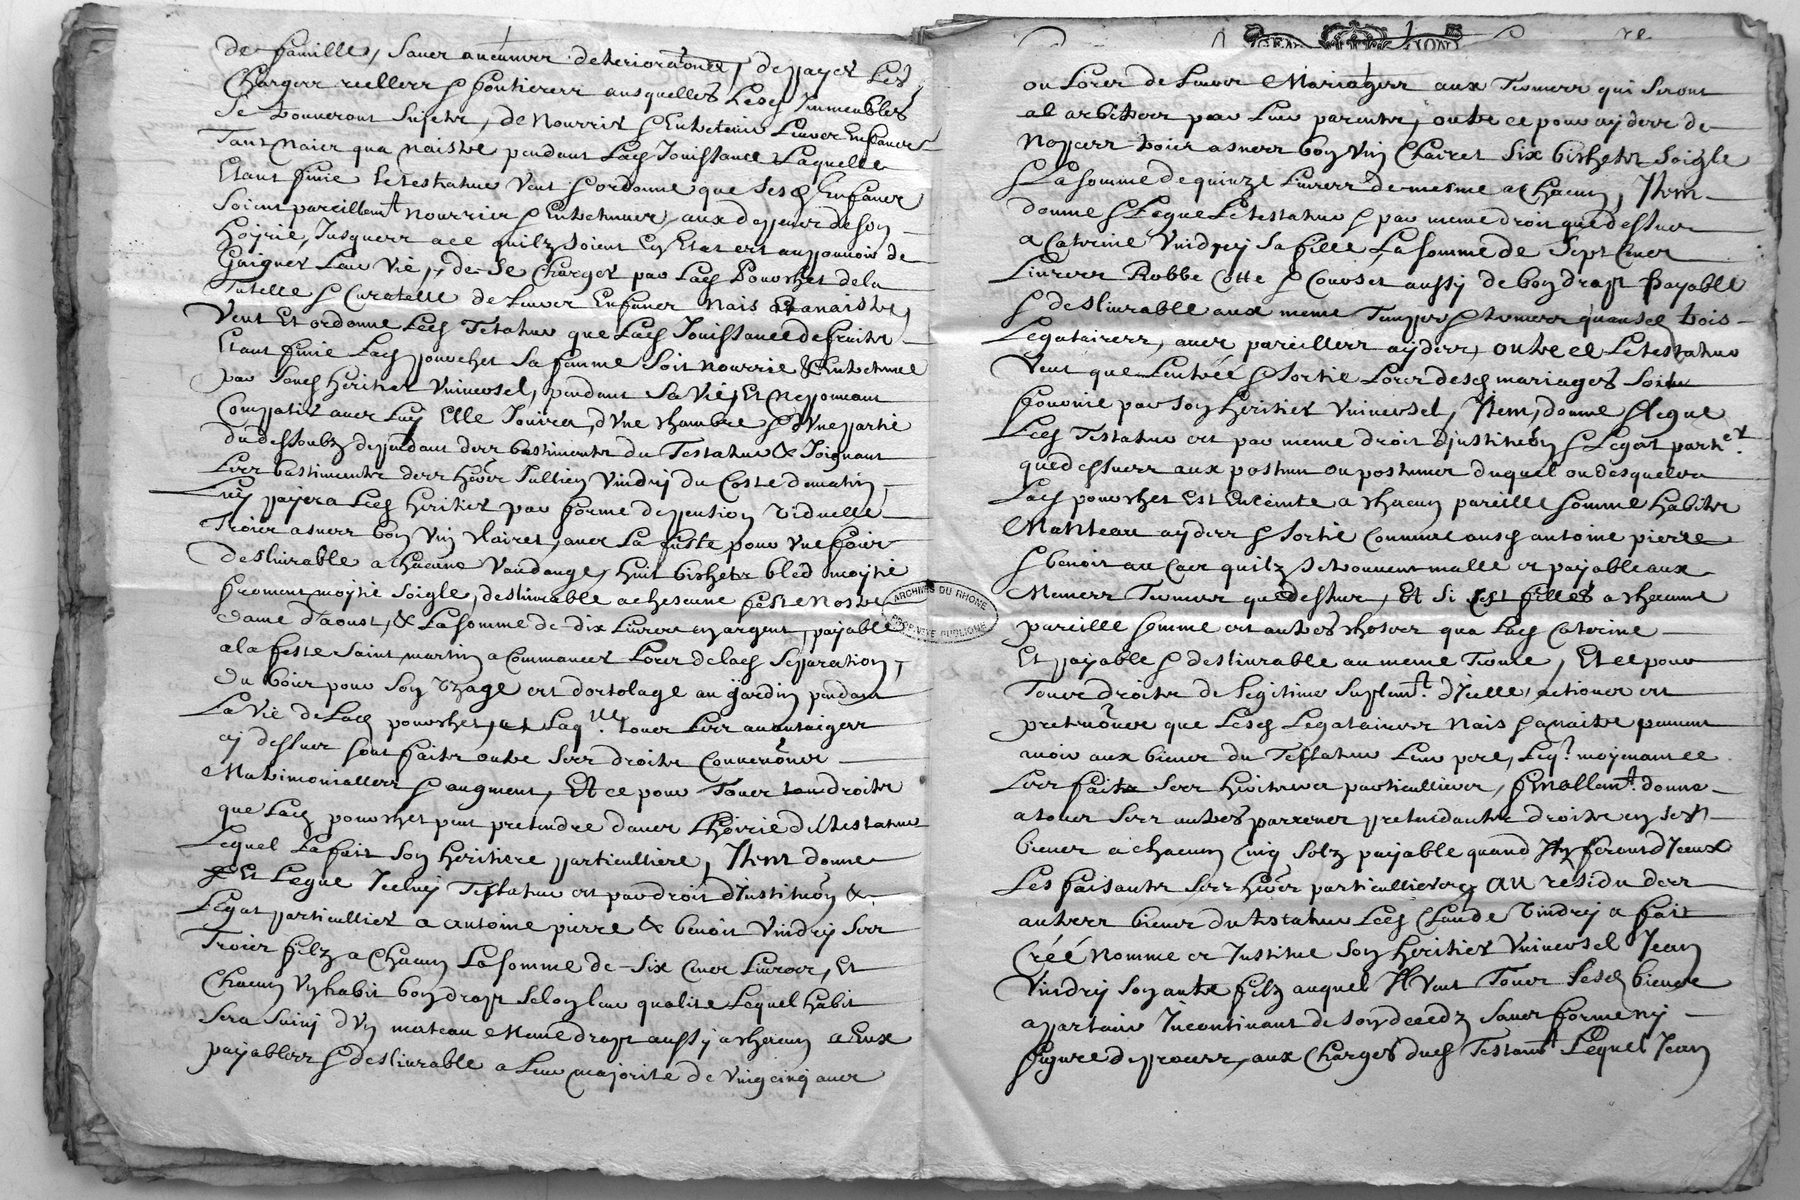 de famille, sans aucunes deteriorations, de payer les
Charges reelles & foncieres ausquelles lesd Immeubles
se trouveront sujetz, de nourrir & Entretenir leurs Enfans
Tant nais qua naistre pendant lad Jouissance Laquelle
Etant finie le testateur Veut & ordonne que sesd Enfans
soient pareillemt nourris & Entretenus aux depens de son
hoyrie, Jusques a ce quilz soient En Etat et au pouvoir de
Gaigner leur Vie, de se Charger par lad Pouchet de la
Tutelle & Curatelle de leurs Enfans nais & a naistre,
Veut Et ordonne led Testateur que lad Jouissance de fruitz
Etant finie lad pouchet sa femme soit nourrie & Entretenue
par sond heritier Universel, pendant sa Vie, Et ne pouvant
Compatir avec luy Elle Jouira, d'Une chambre & d'Une partie
du dessoubz dependant des bastimentz du Testateur & Joignant
Les bastimentz des hoirs Jullien Vindry du Coste de matin,
Luy payera led heritier par forme de pension Viduelle
Trois asnees bon Vin clairet, avec la fuste pour une fois
deslivrable a chacune Vandange, huit bichetz bled moytié
froment moytié soigle, deslivrable a chescune feste nostre
dame d'aoust, & la somme de dix Livres en argent, payable
a la feste saint martin a Commancer Lors de lad separation,
du bois pour son Uzage et d'ortolage au jardin pendant
La Vie de lad pouchet, et laqlle tous les avantaiges
cy dessus sont faitz outre ses droitz Conventions
Matrimonialles & augment, Et ce pour Tous les droitz
que lad pouchet peut pretendre dans L'hoirie du testateur
Lequel la fait son heritiere particulliere, Item donne
& Et Legue Icelluy Testateur et par droit d'Institution &
Legat particullier a antoine pierre & benoit Vindry ses
Trois filz a Chacun La somme de Six Cens Livres, Et
Chacun Un habit bon drapt selon leur qualite Lequel habit
sera suivi d'Un manteau meme drapt aussy a chacun a Eux
payables & deslivrable a leur majorite de Vingt cinq ans
ou Lors de leurs Mariages aux Termes qui seront
al arbitres par leurs parents, outre ce pour ayder de
nopces trois asnees bon Vin Clairet Six bichetz soigle
& La somme de quinze Livres de mesme a Chacun, Item
donne & Legue Le testateur & par meme droit que dessus
a Caterine Vindry sa fille La somme de Sept Cens
Livres Robbe Cotte & Corset aussy de bon drapt Payable
& deslivrable aux meme Temps & termes quausd trois
Legataires, avec pareilles ayders, outre ce Le testateur
Veut que L'entrée & Sortie Lors desd mariages soit
fournie par son heritier Universel, Item, donne & legue
Led Testateur et par meme droit d'Institution & Legat parter
que dessus aux postum ou postumes duquel ou desquels
Lad pouchet Est Enceinte a chacun pareille somme habitz
Manteau ayders & Sortie Comme ausd antoine pierre
& benoit au Cas quilz se trouvent malle et payable aux
Memes Termes que dessus, Et si cest filles a chacune
pareille somme et autres choses qua lad Caterine
Et payable & deslivrable au meme Terme, Et ce pour
Tous droitz de Legitime suplemt d'Icelle, actions et
pretentions que Lesd Legataires nais & a naistre peuvent
avoir aux biens du Testateur Leur pere, Leqt moyenant ce
Les fait ses heritiers particulliers, finallemt donne
a tous ses autres parrens pretendantz droitz en ses
biens a chacun Cinq solz payable quand Ilz feront d'Iceux
Les faisantz ses hoirs particulliers, AU residu des
autres biens du testateur Led Claude Vindry a fait
Créé Nomme et Institue Son heritier Universel Jean
Vindry Son autre filz auquel Il Veut Tous sesd biens
appartenir Incontinant de son deceds sans forme ny
figure de proces, aux Charges dud Testamt Lequel Jean
ARCHIVES DU RHONE
PROPRIETE PUBLIQUE